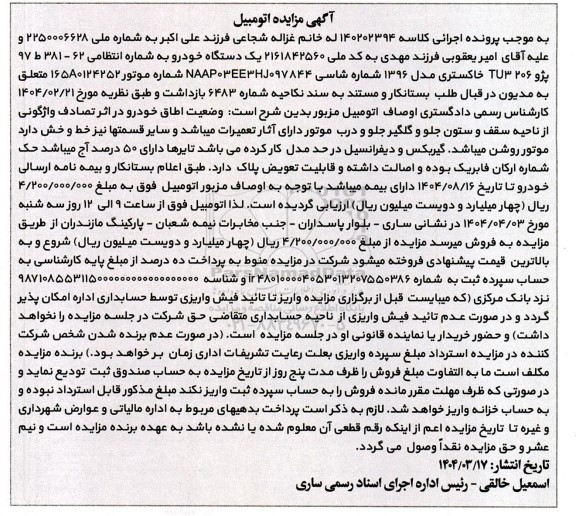 آگهی مزایده اتومبیل
به موجب پرونده اجرائی کلاسه ۱۴۰۲۰۲۳۹۴ له خانم غزاله شجاعی فرزند علی اکبر به شماره ملی ۲۲۵۰۰۰۶۶۲۸ و
علیه آقای امیر یعقوبی فرزند مهدی به کد ملی ۲۱۶۱۸۴۲۵۶۰ یک دستگاه خودرو به شماره انتظامی ۶۲ - ۳۸۱ ط ۹۷
پژو ۲۰۶ TU3 خاکستری مدل ۱۳۹۶ شماره شاسی NAAP03EE3HJ097844 شماره موتور 165A0124252 متعلق
به مدیون در قبال طلب بستانکار و مستند به سند نکاحیه شماره ۶۴۸۳ بازداشت و طبق نظریه مورخ ۱۴۰۴/۰۲/۲۱
کارشناس رسمی دادگستری اوصاف اتومبیل مزبور بدین شرح است: وضعیت اطاق خودرو در اثر تصادف واژگونی
از ناحیه سقف و ستون جلو و گلگیر جلو و درب موتور دارای آثار تعمیرات میباشد و سایر قسمتها نیز خط و خش دارد
موتور روشن میباشد. گیربکس و دیفرانسیل در حد مدل کار کرده می باشد تایرها دارای ۵۰ درصد آج میباشد حک
شماره ارکان فابریک بوده و اصالت داشته و قابلیت تعویض پلاک دارد. طبق اعلام بستانکار و بیمه نامه ارسالی
خودرو تا تاریخ ۱۴۰۴/۰۸/۱۶ دارای بیمه میباشد با توجه به اوصاف مزبور اتومبیل فوق به مبلغ ۴/۲۰۰/۰۰۰/۰۰۰
ریال (چهار میلیارد و دویست میلیون ریال) ارزیابی گردیده است. لذا اتومبیل فوق از ساعت ۹ الی ۱۲ روز سه شنبه
مورخ ۱۴۰۴/۰۴/۰۳ در نشانی ساری - بلوار پاسداران - جنب مخابرات نیمه شعبان - پارکینگ مازندران از طریق
مزایده به فروش میرسد مزایده از مبلغ ۴/۲۰۰/۰۰۰/۰۰۰ ریال (چهار میلیارد و دویست میلیون ریال) شروع و به
بالاترین قیمت پیشنهادی فروخته میشود شرکت در مزایده منوط به پرداخت ده درصد از مبلغ پایه کارشناسی به
حساب سپرده ثبت به شماره ir۲۴۸۰۱۰۰۰۰۴۰۵۳۰۱۳۲۰۷۵۵۰۳۸۶ و شناسه
نزد بانک مرکزی (که میبایست قبل از برگزاری مزایده واریز تا تائید فیش واریزی توسط حسابداری اداره امکان پذیر
گردد و در صورت عدم تائید فیش واریزی از ناحیه حسابداری متقاضی حق شرکت در جلسه مزایده را نخواهد
داشت) و حضور خریدار یا نماینده قانونی او در جلسه مزایده است. (در صورت عدم برنده شدن شخص شرکت
کننده در مزایده استرداد مبلغ سپرده واریزی بعلت رعایت تشریفات اداری زمان بر خواهد بود.) برنده مزایده
مکلف است ما به التفاوت مبلغ فروش را ظرف مدت پنج روز از تاریخ مزایده به حساب صندوق ثبت تودیع نماید و
در صورتی که ظرف مهلت مقرر مانده فروش را به حساب سپرده ثبت واریز نکند مبلغ مذکور قابل استرداد نبوده و
به حساب خزانه واریز خواهد شد. لازم به ذکر است پرداخت بدهیهای مربوط به اداره مالیاتی و عوارض شهرداری
و غیره تا تاریخ مزایده اعم از اینکه رقم قطعی آن معلوم شده یا نشده باشد به عهده برنده مزایده است و نیم
عشر و حق مزایده نقداً وصول می گردد.
تاریخ انتشار: ۱۴۰۴/۰۳/۱۷
اسمعیل خالقی - رئیس اداره اجرای اسناد رسمی ساری